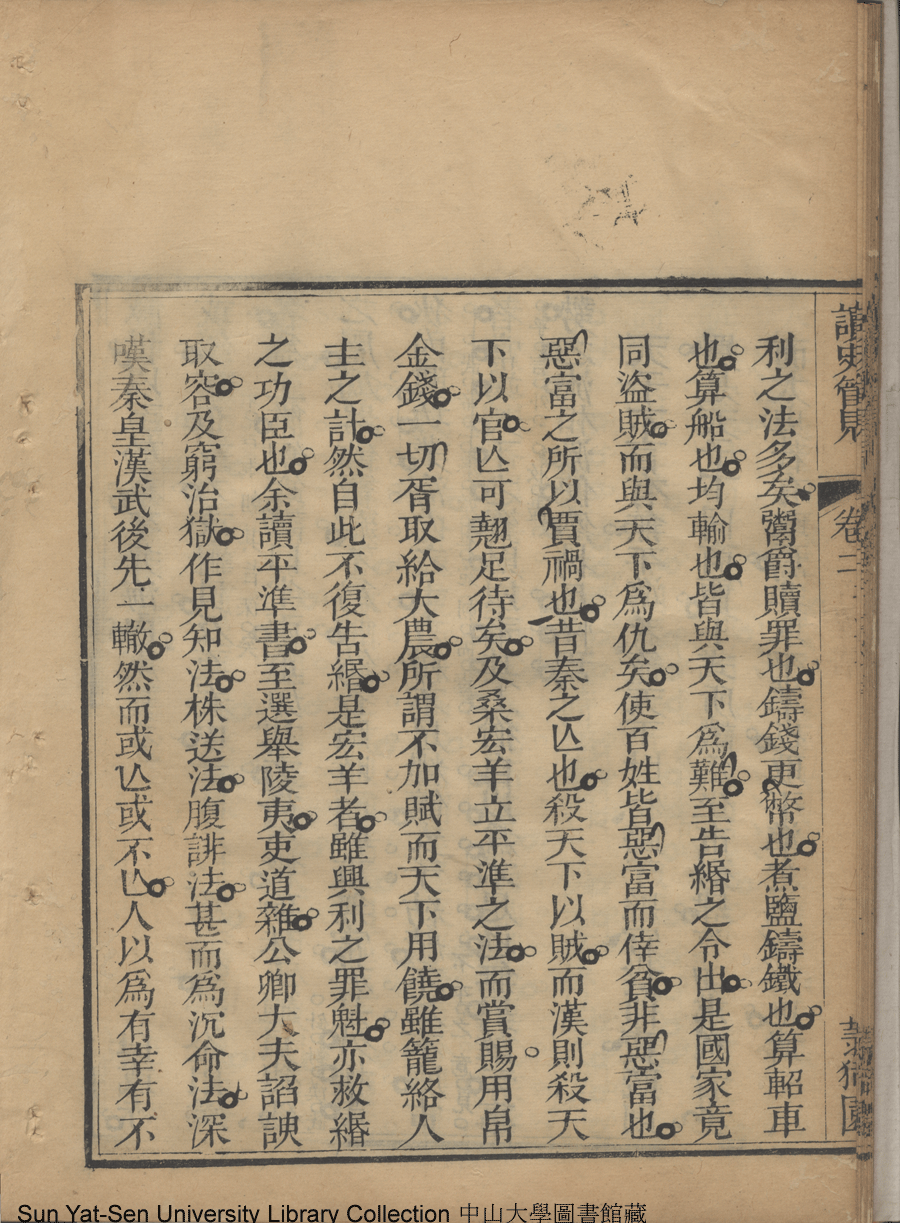 讀史管見
卷二
利之法多矣鬻爵贖罪也鑄錢更幣也煮鹽鑄鐵也算軺車
也算船也均輸也皆與天下爲難至告緡之令出是國家竟
同盗賊而與天下爲仇矣使百姓皆惡富而倖貧非惡富也
惡富之所以賈禍也昔秦之亾也殺天下以賊而漢則殺天
下以官亾可翹足待矣及桑宏羊立平準之法而賞賜用帛
金錢一切胥取給大農所謂不加賦而天下用饒雖籠絡人
主之計然自此不復告緡是宏羊者雖興利之罪魁亦救緡
之功臣也余讀平準書至選舉陵夷吏道雜公卿大夫諂諛
取容及窮治獄作見知法株送法腹誹法甚而爲沉命法深
嘆秦皇漢武後先一轍然而或亾或不亾人以爲有幸有不
Sun Yat-Sen University Library Collection 中山大學圖書館藏